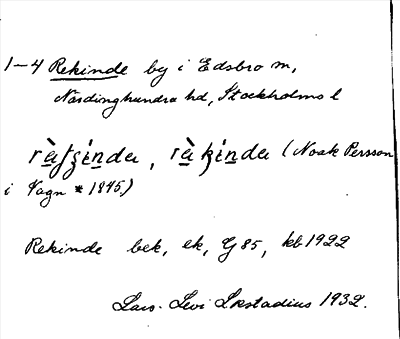 1-4 Rekinde by i Edsbro sn,
Närdinghundra hd, Stockholms l
(Noak Persson
i Vagn * 1845.)
Rekinde bek, ek, G 85, kb 1922
Lars-Levi Læstadius 1932.